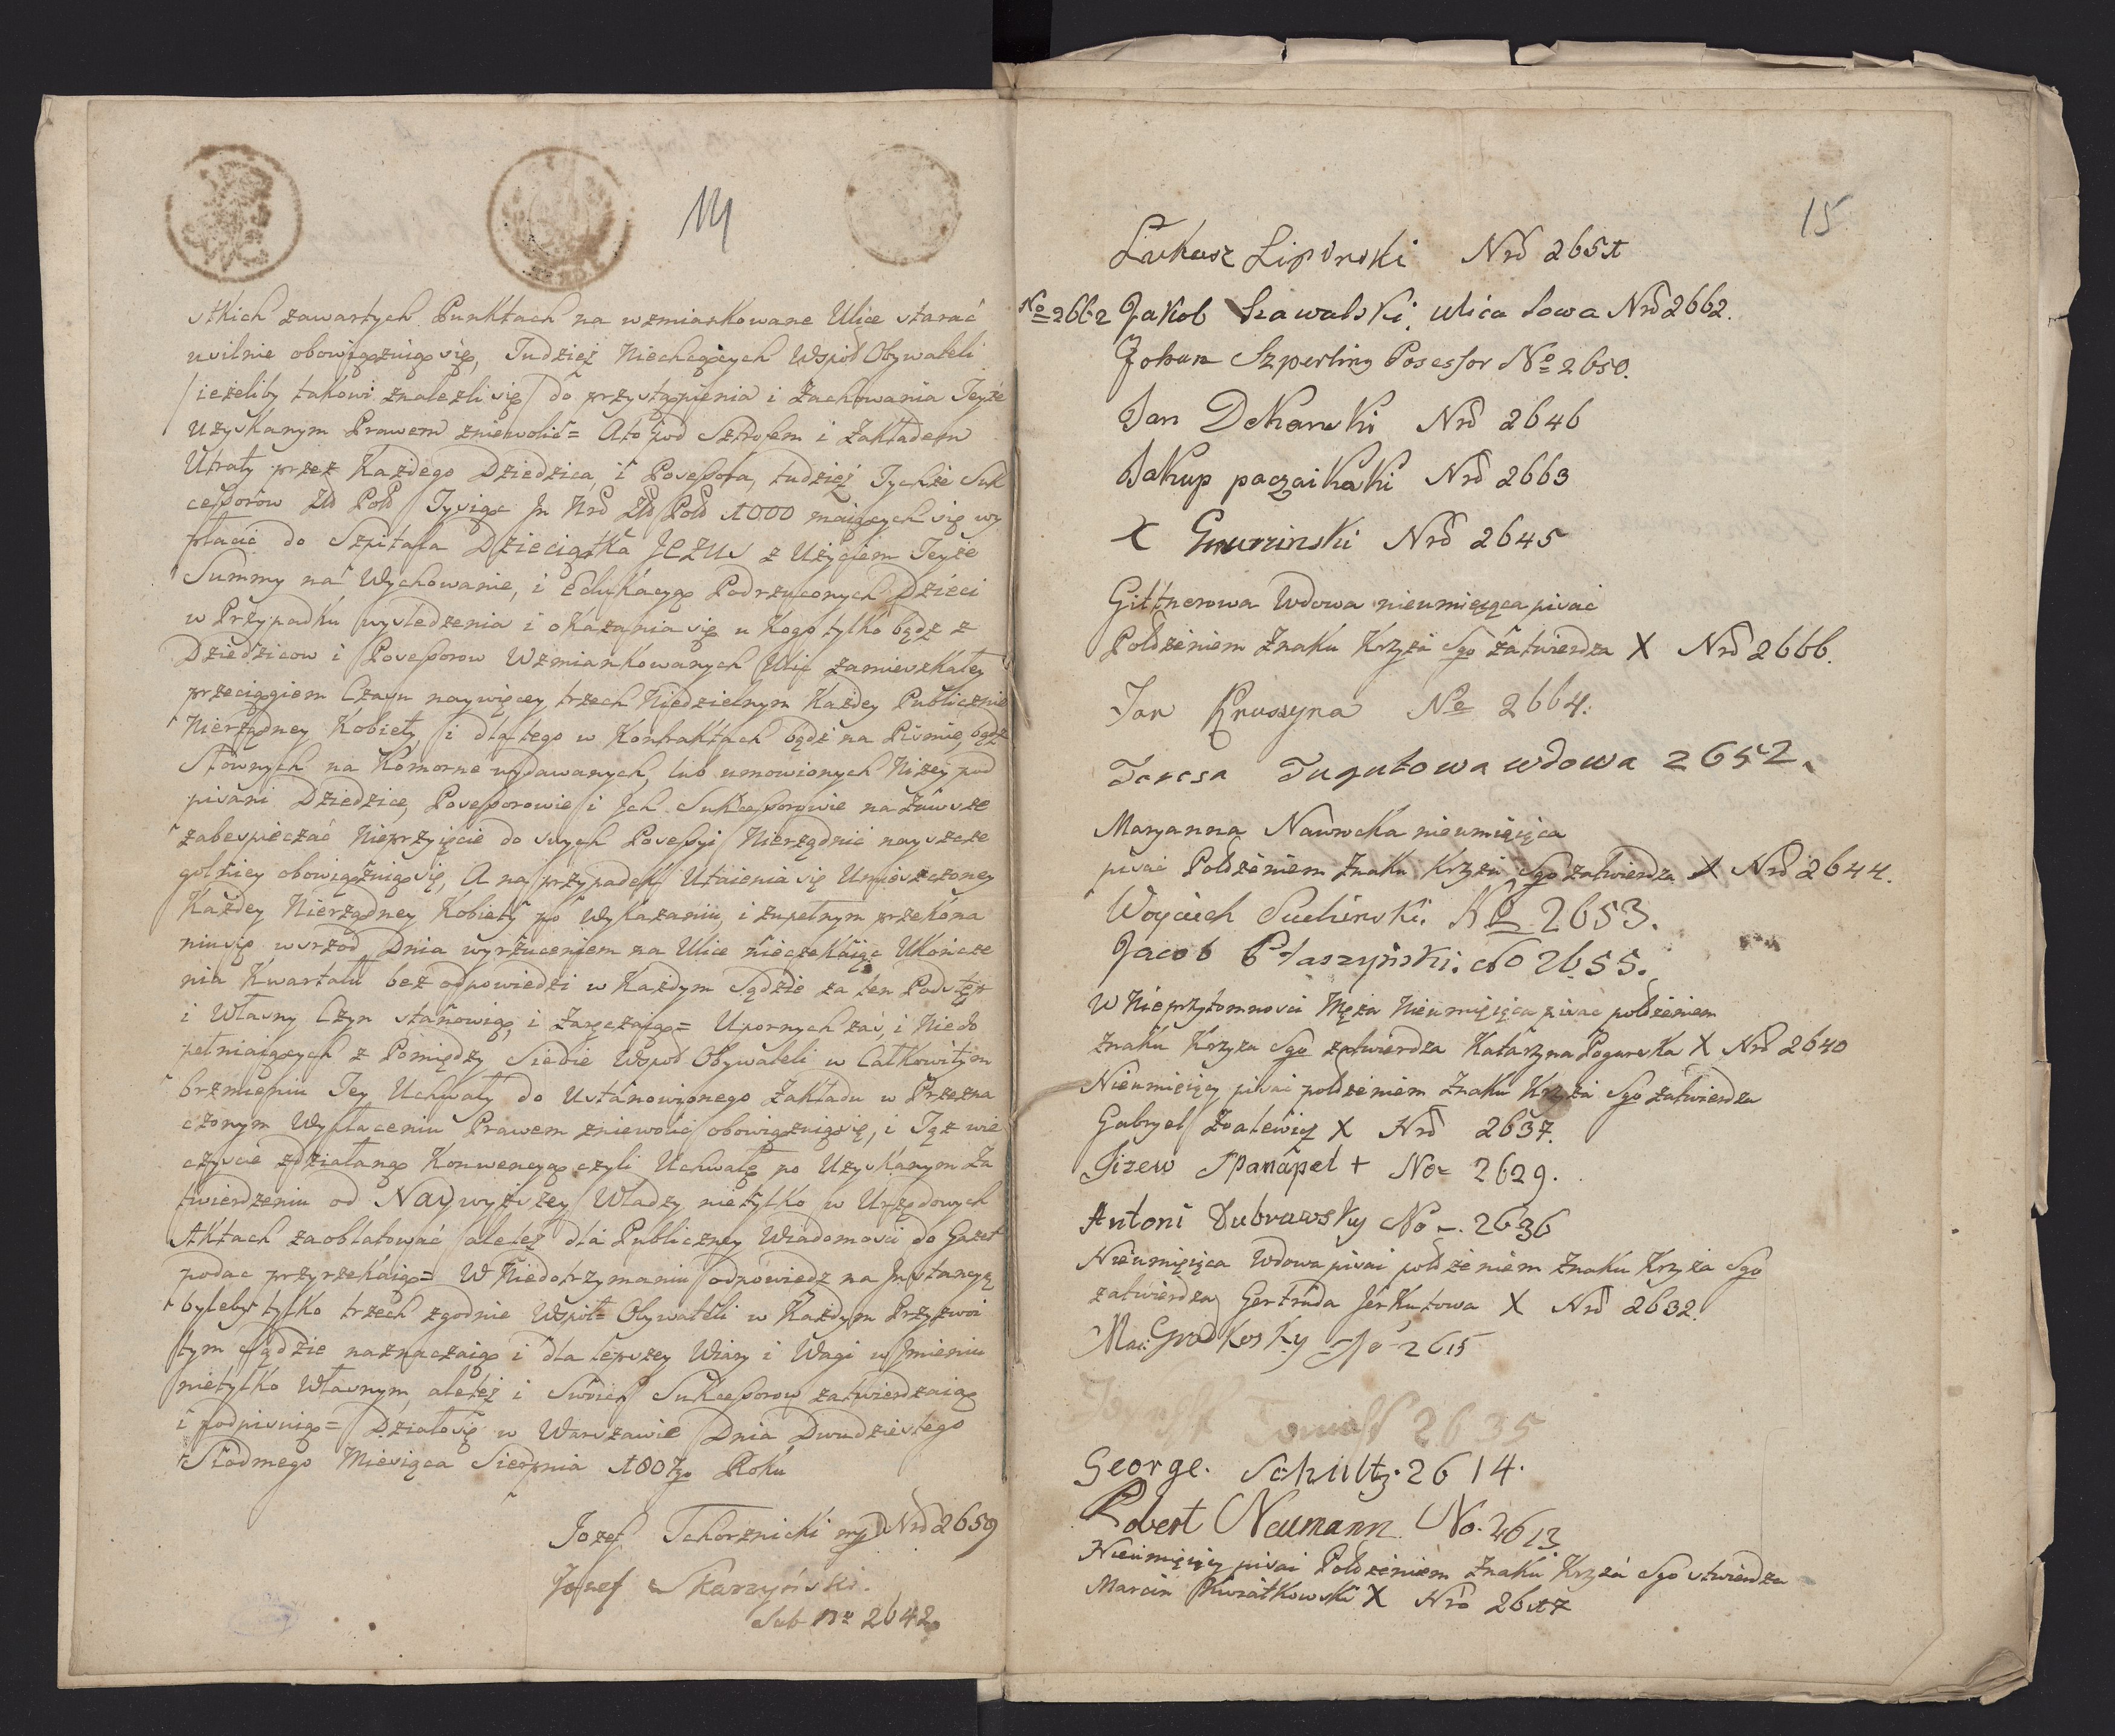 14
stkich zawartych Punktach na wzmiankowane Ulice starać
usilnie obowiązuią się, Tudzież Niechcących Wspoł Obywateli
/ieżeliby takowi znalezli się/ do przystąpienia i Zachowania Teyże
uzyskanym Prawem zniewolić= Ato pod Sztrofem i Zakładem
Utraty przez Każdego Dziedzica, i Possessora, tudzież Tychże Suk
cessorow Złł Pold / Tysiąc Jn Nrd Złł Pold 1000 maiących się wy
płacić do Szpitala Dzieciątka JEZUS z Użyciem Teyże
Summy na Wychowanie, i Edukacyą Podrzuconych Dzieci
w Przypadku wysledzenia i okazania się u Kogo tylko bądz z
Dziedzicow i Possessorow Wzmiankowanych Ulic zamieszkałey
przeciągiem Czasu naywięcey trzech Niedzielnym Każdey Publicznie
Nierządney Kobiety, i dla tego w Kontraktach bądź na Pismie, bądz
Słownych na Komorne wydawanych, lub umowionych Niżey pod
pisani Dziedzice, Possessorowie i Jch Sukcessorowie na Zawsze
zabespieczać Nieprzyięcie do swych Possessyi Nierządnic nayszcze
gulniey obowiązuią się, A na przypadek Utaienia się Umieszczoney
Każdey Nierządney Kobiety po Wykazaniu, i zupełnym przekona
niu się wsrzod Dnia wyrzuceniem na Ulice nieczekaiąc Ukończe
nia Kwartału bez odpowiedzi w Każdym Sądzie za ten Postęp
i Własny Czyn stanowią, i Zaręczaią= Upornych zaś, i Niedo
pełniaiących z Pomiędzy Siebie Wspoł Obywateli w Całkowitym
brzmieniu Tey Uchwały do Ustanowionego Zakładu w Przezna
czonym Wypłaceniu Prawem zniewolić obowiązuią się, i Tąż wie
czyscie zdziałaną Konwencyą czyli Uchwałę po Uzyskanym Za
twierdzeniu od Naywyższey Władzy nietylko w Urzędowych
Aktach zaoblatować ale też dla Publiczney Wiadomości do Gazet
podac przyrzekaią= W Niedotrzymaniu odpowiedz na Jnstancyą
byleby tylko trzech zgodnie Wspoł= Obywateli w Każdym Przyzwoi
tym Sądzie naznaczaią i dla lepszey Wiary i Wagi w Jmieniu
nietylko Własnym, ale też i Swoich Sukcessorow zatwierdzaią
i podpisuią= Działo się w Warszawie Dnia Dwudziestego
Siodmego Miesiąca Sierpnia 1807go Roku
Jozef Tchorznicki mp Nrd 2659
Jozef Skarzyński.
Sub Nr 2642
15
Łukasz Lipinski Nrd 2651
No 2662 Jakob Szawalski, ulica Sowa Nrd 2662.
Johan Szperling Posessor No 2650.
Jan Dekanski Nrd 2646
Jakup paczaikaki Nrd 2663
X Gmurzinski Nrd 2645
Gittnerowa Wdowa nieumieiąca pisac
Połozeniem Znaku Krzyża Sgo zatwierdza X Nrd 2666.
Jan Kruszyna No 2664.
Teresa Tugutowa wdowa 2652.
Maryanna Nawrocka nieumieiąca
pisac Połozeniem Znaku Krzyża Sgo zatwierdza X Nrd 2644.
Woyciech Suchinski. No 2653.
Jacob Płaszyński. No 2655.
W Nieprzytomnosci Męża Nieumieiąca pisac położeniem
Znaku Krzyza Sgo zatwierdza Katarzyna Pogurska X Nrd 2640
Nieumieiący pisac położeniem Znaku Krzyża Sgo zatwierdza
Gabryel X Nrd 2637.
+ No 2629.
Antoni Dubrawsky No. 2636
Nieumieiąca Wdowa pisac położeniem Znaku Krzyża Sgo
zatwierdza Gertruda Jerkutowa X Nrd 2632.
Mac: Grodkosky No 2615
2635
George. Schultz. 2614.
Robert Neumann. No. 2613
Nieumieiący pisac Położeniem Znaku Krzyża Sgo stwierdza
Marcin Kwiatkowski X Nro 2617